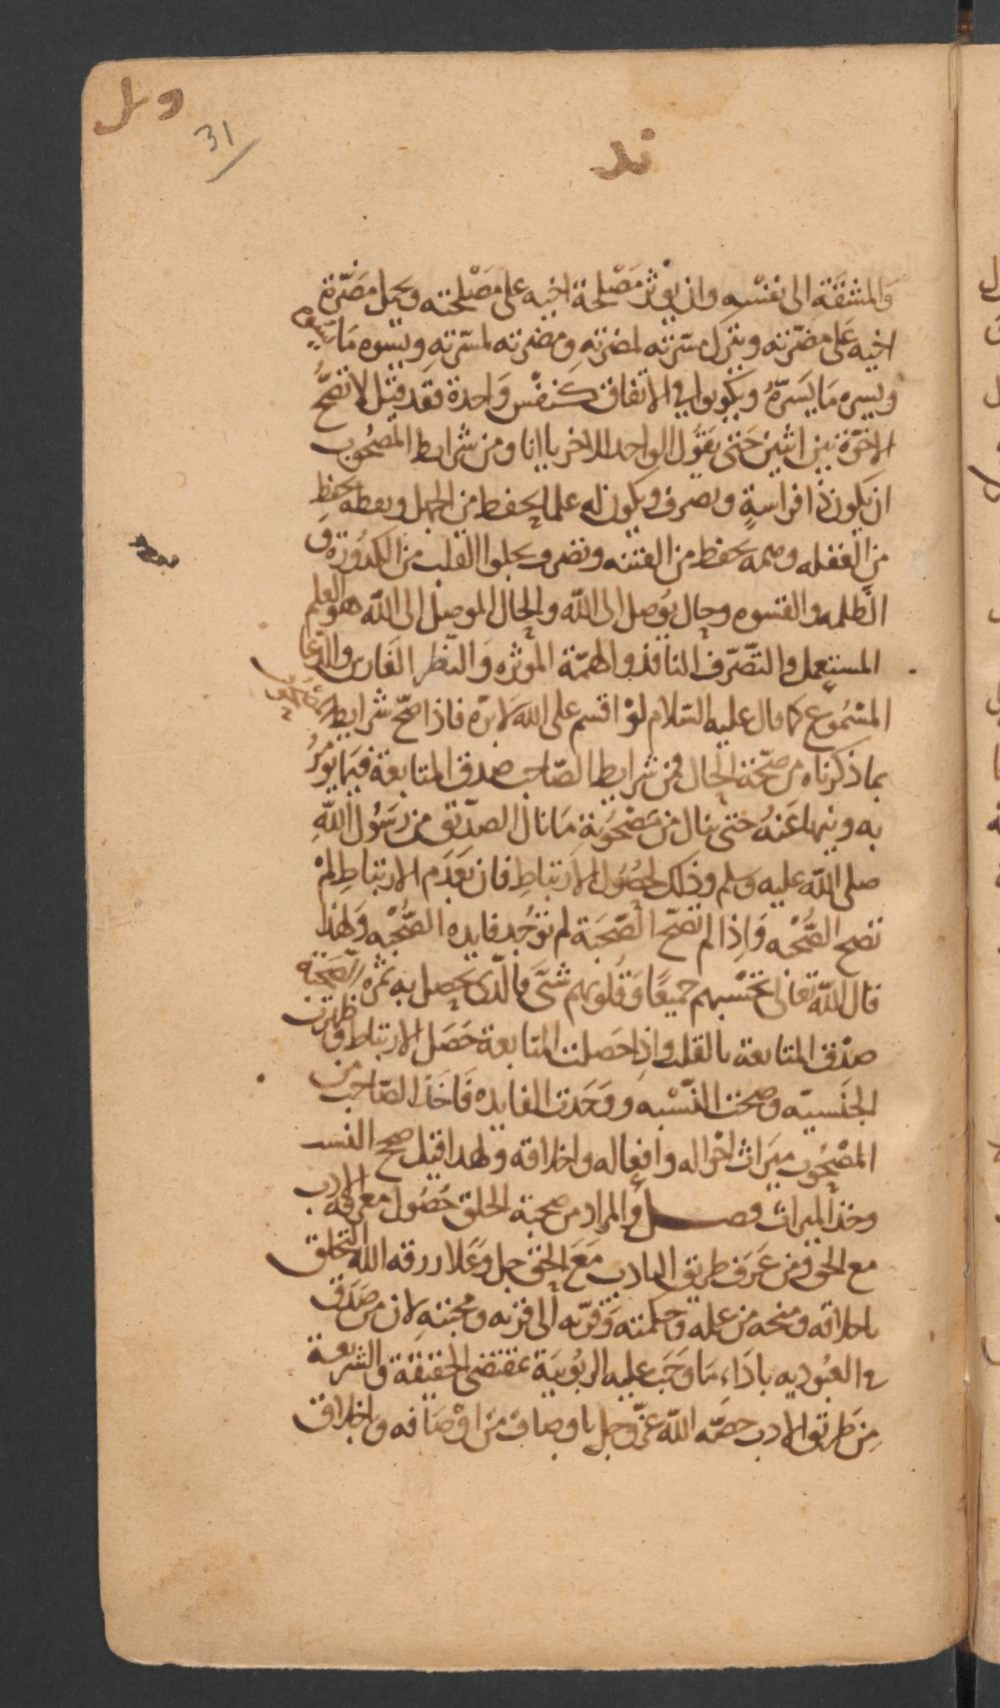 31
والمشقة الى نفسه وان يؤثر مصلحة اخيه على مصلحته ويحمل مضرّة
اخيه على مضرته وينزل مسرته لمضرته ومضرته لمسرته ويسوه ما يسوه
ويسره ما يسرّه ويكونوا في الاتفاق كنفس واحدة فقد قيل لا تصحّ
الاخوة بين اثنين حتى يقول الواحد للاخر يا انا ومن شرايط المصحوب
ان يكون ذا فراسةٍ وتصرف ويكون له علما يحفظ من الجهل ويقظه تحفظ
من الغفله وهمه تحفظ من الفتنه وتصرف يجلوا القلب من الكدورة و
الظلمه والقسوه وحال يوصل الى الله والحال الموصل الى الله هو العلم
المستعمل والتصّرف النافذ والهمّة الموثره والنظر الفارس والدّعا
المسموع كما قال عليه السلام لو اقسم على الله لابرّه فاذا صحّ شرايط
بما ذكرناه من صحّة الحال فمن شرايط الصّاحب صدق المتابعة فيما يومرُ
به وينها عنهُ حتى ينال من مصحوبه ما نال الصدّيق من رسول الله
صلى الله عليه وسلم وذلك لحصُول الارتباط فان تعدم الارتباط لم
تصح الصُحبه واذا لم تصحّ الصّحبة لم توجد فايده الصُّحبه ولهذا
قال الله تعالى تحسبهم جميعًا وقلوبهم شتّى فالّذى يحصل به ثمره الصّحبة
صدق المتابعة بالقلب واذا حصلت المتابعة حصل الارتباط وظهرت
الجنسيّه وصحت النّسْبه ووجدت الفايده فاخذ الصّاحب من
المصْحُوب ميراث احْواله وافعاله واخلاقه ولهذا قيل صحح النسب
وخذ الميراث فصـــل والمراد من صحبة الخلق حُصُول معرفة الادب
مع الحق فمن عَرف طريق الادب مَعَ الحق جل وعَلا رزقه الله التخلق
باخلاقه ومنحه من علمه وحكمته وقرّبه الى قربه ومحبته لان من صَدَق
في العبُوديه باداء ما وجَبَ عليه الربُوبيَة بمقتضى الحقيقة والشريعة
من طريق الادب خصّه الله عزّ وجل باوصاف من اوْصَافه واخلاق